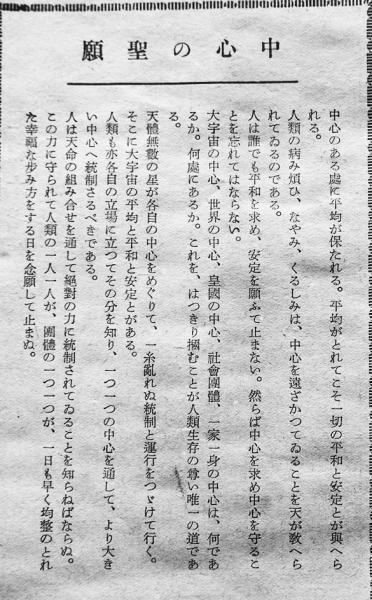 中心の聖願
中心のある處に平均が保たれる。平均がとれてこそ一切の平和と安定とが與へら
れる。
人類の病み煩ひ、なやみ、くるしみは、中心を遠ざかつてゐることを天が敎へら
れてゐるのである。
人は誰でも平和を求め、安定を願ふて止まない。然らば中心を求め中心を守るこ
とを忘れてはならない。
大宇宙の中心、世界の中心、皇國の中心、社會團體、一家一身の中心は、何であ
るか。何處にあるか。これを、はつきり摑むことが人類生存の尊い唯一の道であ
る。
天體無數の星が各自の中心をめぐりて、一糸亂れぬ統制と運行をつゞけて行く。
そこに大宇宙の平均と平和と安定とがある。
人類も亦各自の立場に立つてその分を知り、一つ一つの中心を通して、より大き
い中心へ統制さるべきである。
人は天命の組み合せを通して絕對の力に統制されてゐることを知らねばならぬ。
この力に守られて人類の一人一人が、團體の一つ一つが、一日も早く均整のとれ
た幸福な步み方をする日を念願して止まぬ。